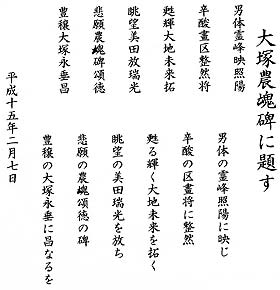 大塚農魂碑に題す
男体霊峰映照陽
辛酸畫区整然将
甦輝大地未来拓
眺望美田放瑞光
悲願農魂碑頌徳
豊穣大塚永垂昌
男体の霊峰照陽に映じ
辛酸の区畫将に整然
甦る輝く大地未来を拓く
眺望の美田瑞光を放ち
悲願の農魂頌徳の碑
豊穣の大塚永垂に昌なるを
平成十五年二月七日